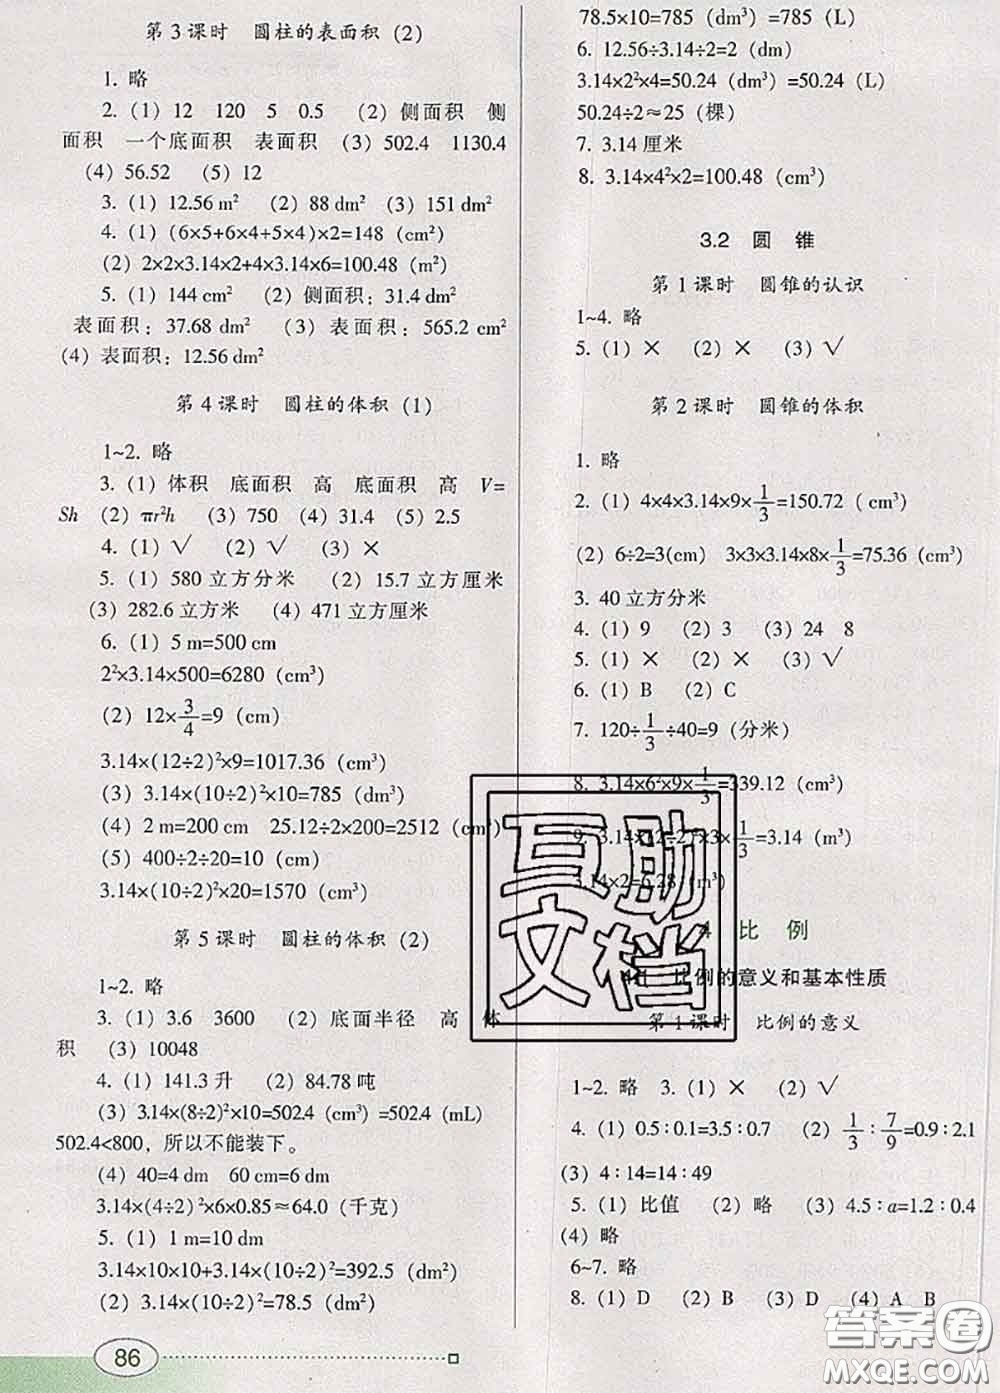 第3课时 圆柱的表面积(2)
1. 略
2. (1) 12 120 5 0.5 (2) 侧面积 侧
面积 一个底面积 表面积 (3) 502.4 1130.4
(4) 56.52 (5) 12
3. (1) 12.56 m² (2) 88 dm² (3) 151 dm²
4. (1) (6×5+6×4+5×4)×2=148 (cm²)
(2) 2×2×3.14×2+4×3.14×6=100.48 (m²)
5. (1) 144 cm² (2) 侧面积: 31.4 dm²
表面积: 37.68 dm² (3) 表面积: 565.2 cm²
(4) 表面积: 12.56 dm²
第4课时 圆柱的体积(1)
1~2. 略
3. (1) 体积 底面积 高 底面积 高 V=
Sh (2) πr²h (3) 750 (4) 31.4 (5) 2.5
4. (1) √ (2) √ (3) ×
5. (1) 580 立方分米 (2) 15.7 立方厘米
(3) 282.6 立方米 (4) 471 立方厘米
6. (1) 5 m=500 cm
2²×3.14×500=6280 (cm³)
(2) 12×3/4=9 (cm)
3.14×(12÷2)²×9=1017.36 (cm³)
(3) 3.14×(10÷2)²×10=785 (dm³)
(4) 2 m=200 cm 25.12÷2×200=2512 (cm³)
(5) 400÷2÷20=10 (cm)
3.14×(10÷2)²×20=1570 (cm³)
第5课时 圆柱的体积(2)
1~2. 略
3. (1) 3.6 3600 (2) 底面半径 高 体
积 (3) 10048
4. (1) 141.3 升 (2) 84.78 吨
(3) 3.14×(8÷2)²×10=502.4 (cm³) =502.4 (mL)
502.4<800, 所以不能装下。
(4) 40=4 dm 60 cm=6 dm
3.14×(4÷2)²×6×0.85≈64.0 (千克)
5. (1) 1 m=10 dm
3.14×10×10+3.14×(10÷2)²=392.5 (dm²)
(2) 3.14×(10÷2)²=78.5 (dm²)
86
78.5×10=785 (dm³) =785 (L)
6. 12.56÷3.14÷2=2 (dm)
3.14×2²×4=50.24 (dm³) =50.24 (L)
50.24÷2≈25 (棵)
7. 3.14 厘米
8. 3.14×4²×2=100.48 (cm³)
3.2 圆 锥
第1课时 圆锥的认识
1~4. 略
5. (1) × (2) × (3) √
第2课时 圆锥的体积
1. 略
2. (1) 4×4×3.14×9×1/3=150.72 (cm³)
(2) 6÷2=3(cm) 3×3×3.14×8×1/3=75.36 (cm³)
3. 40 立方分米
4. (1) 9 (2) 3 (3) 24 8
5. (1) × (2) × (3) √
6. (1) B (2) C
7. 120÷1/3÷40=9 (分米)
8. 3.14×6²×9×1/3=339.12 (cm³)
9. 3.14×(2÷2)²×3×1/3=3.14 (m³)
3.14×2=6.28 (m³)
4 比 例
4.1 比例的意义和基本性质
第1课时 比例的意义
1~2. 略 3. (1) × (2) √
4. (1) 0.5∶0.1=3.5∶0.7 (2) 1/3∶7/9=0.9∶2.1
(3) 4∶14=14∶49
5. (1) 比值 (2) 略 (3) 4.5∶a=1.2∶0.4
(4) 略
6~7. 略
8. (1) D (2) B (3) D (4) A B
互助
文档
答案圈
MXQE.COM